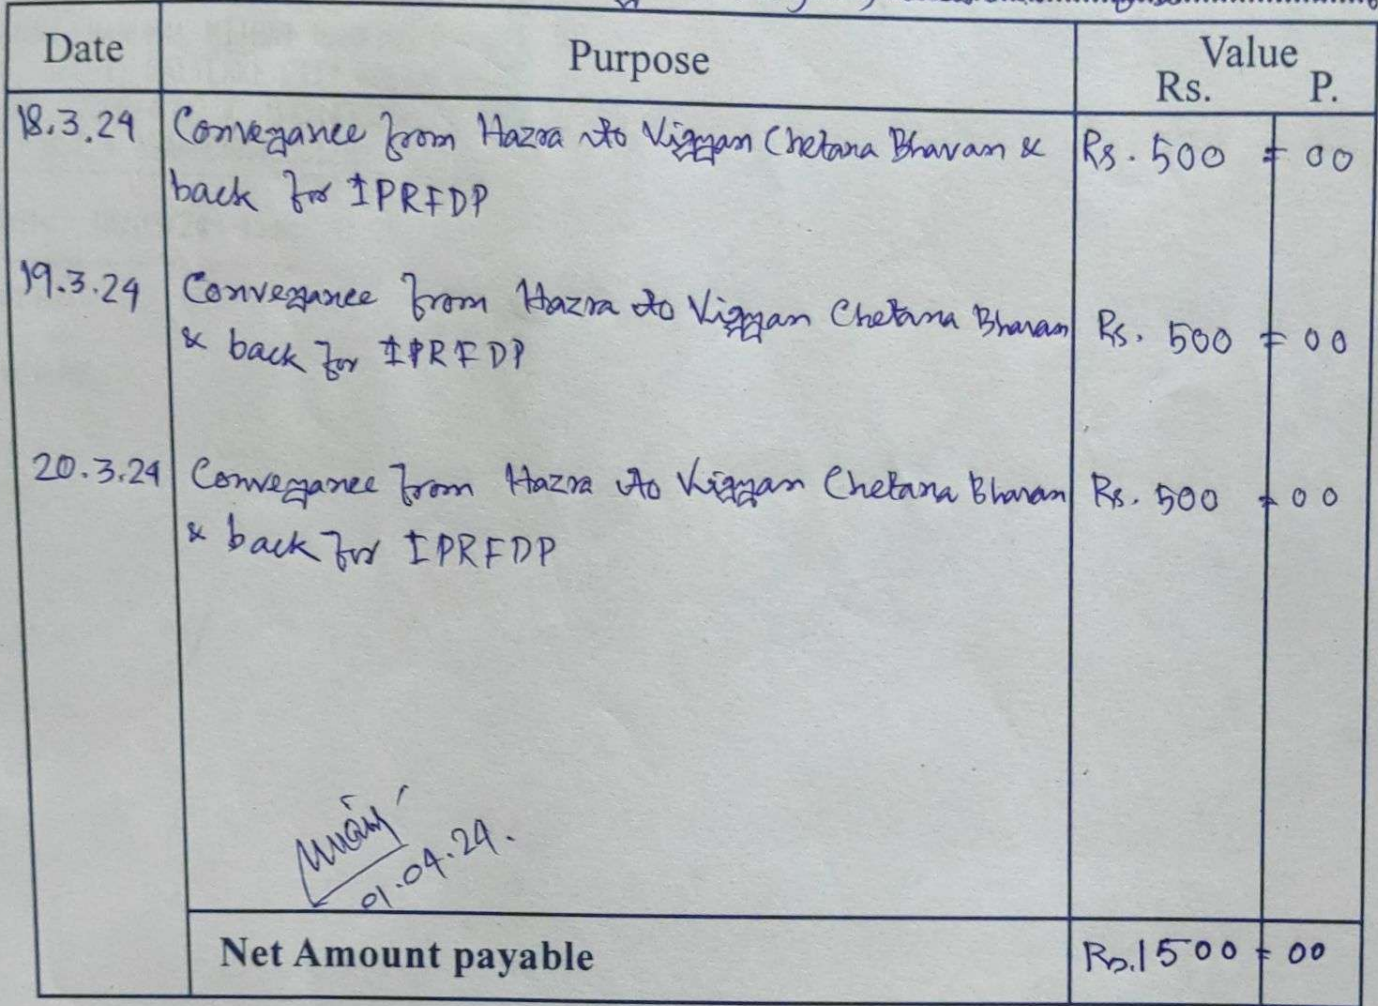 Date Purpose Value
Rs. P.
18.3.24 Conveyance from Hazra to Vigyan Chetana Bhavan & Rs. 500 = 00
back for IPRFDP
19.3.24 Conveyance from Hazra to Vigyan Chetana Bhavan Rs. 500 = 00
& back for IPRFDP
20.3.24 Conveyance from Hazra to Vigyan Chetana Bhavan Rs. 500 = 00
& back for IPRFDP
01.04.24.
Net Amount payable Rs.1500 = 00